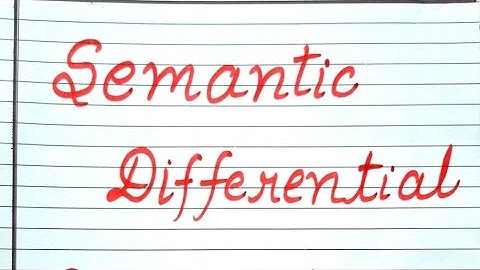 Semantic
Differential